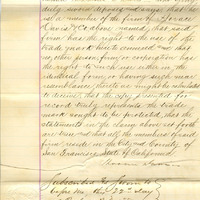 duly sworn deposes and says that he
is a member of the firm of Horace
Davis & Co above named, that said
firm has the right to the use of the
trade mark hereto annexed and that
no other person, firm or corporation has
the right to such use either in the
identical form, or having such near
resemblance thereto as might be calculated
to deceive; that the copy presented for
record truly represents the trade
mark sought to be protected, that the
statements in the clause above set forth
are true and that all the members of said
firm reside in the City and County of
San Francisco State of California
Subscribed & Sworn to
before me this 22d day